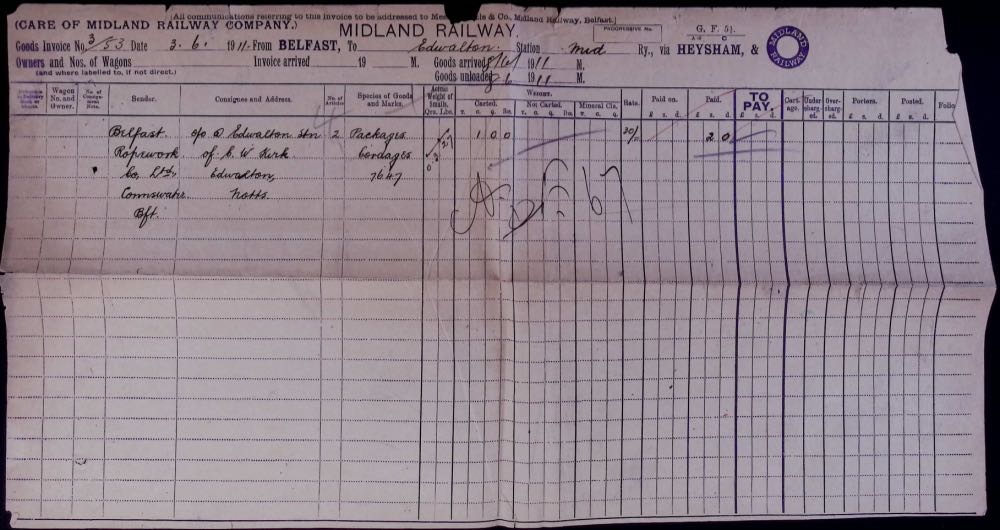 [All communications referring to this invoice to be addressed to & Co., Midland Railway, Belfast.]
(CARE OF MIDLAND RAILWAY COMPANY.)
MIDLAND RAILWAY.
PROGRESSIVE No.
G. F. 5½.
Goods Invoice No. 3/53 Date 3.6. 1911. From BELFAST, To Edwalton. Station Mid Ry., via HEYSHAM, &
MIDLAND RAILWAY
Owners and Nos. of Wagons Invoice arrived 19 M. Goods arrived 1911 M.
(and where labelled to, if not direct.) Goods unloaded 1911 M.
Wagon No. and Owner. No. of Consignment Note. Sender. Consignee and Address. No. of Articles Species of Goods and Marks. Actual Weight of Smalls. Qrs. Lbs. Weight. Carted. T. C. Q. lbs. Not Carted. T. C. Q. lbs Mineral Cls. T. C. Q. Rate. Paid on. £ s. d. Paid. £ s. d. TO PAY. £ s. d. Cartage. Undercharged. Overcharged. Porters. £ s. d. Posted. £ s. d. Folio
Belfast c/o Edwalton Stn 2 Packages 1 0 0 20/ 2 0
Ropework of C. W. Kirk Cordages
Co, Ltd, Edwalton, 7647
Connswater Notts.
Bft.